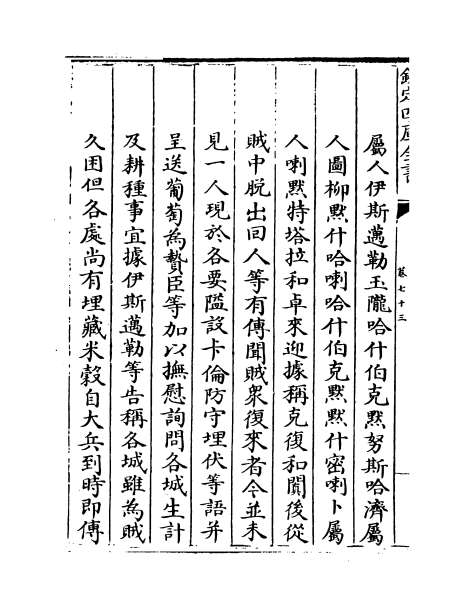 欽定四庫全書
卷七十三
屬人伊斯邁勒玉隴哈什伯克黙努斯哈濟屬
人圖栁黙什哈喇哈什伯克黙黙什密喇卜屬
人喇黙特塔拉和卓來迎據稱克復和闐後從
賊中脫出回人等有傳聞賊衆復來者今並未
見一人現於各要隘設卡倫防守埋伏等語并
呈送葡萄為贄臣等加以撫慰詢問各城生計
及耕種事宜據伊斯邁勒等告稱各城雖為賊
久困但各處尚有埋藏米穀自大兵到時即傳